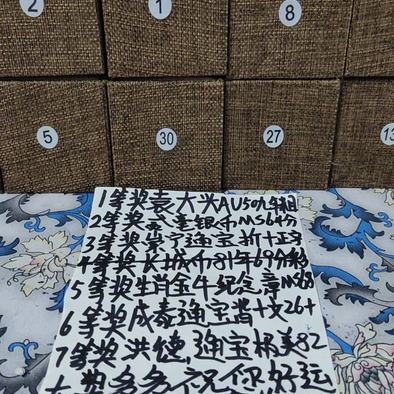 2
1
8
5
30
27
13
1等奖袁大头AU50九年粗
2等奖 币MS64分
3等奖崇宁通宝折十正字
4等奖长城币81年69分
5等奖生肖金牛纪念章MS69
6等奖咸泰通宝当十文26
7等奖洪德,通宝极美82
大奖多多祝你好运